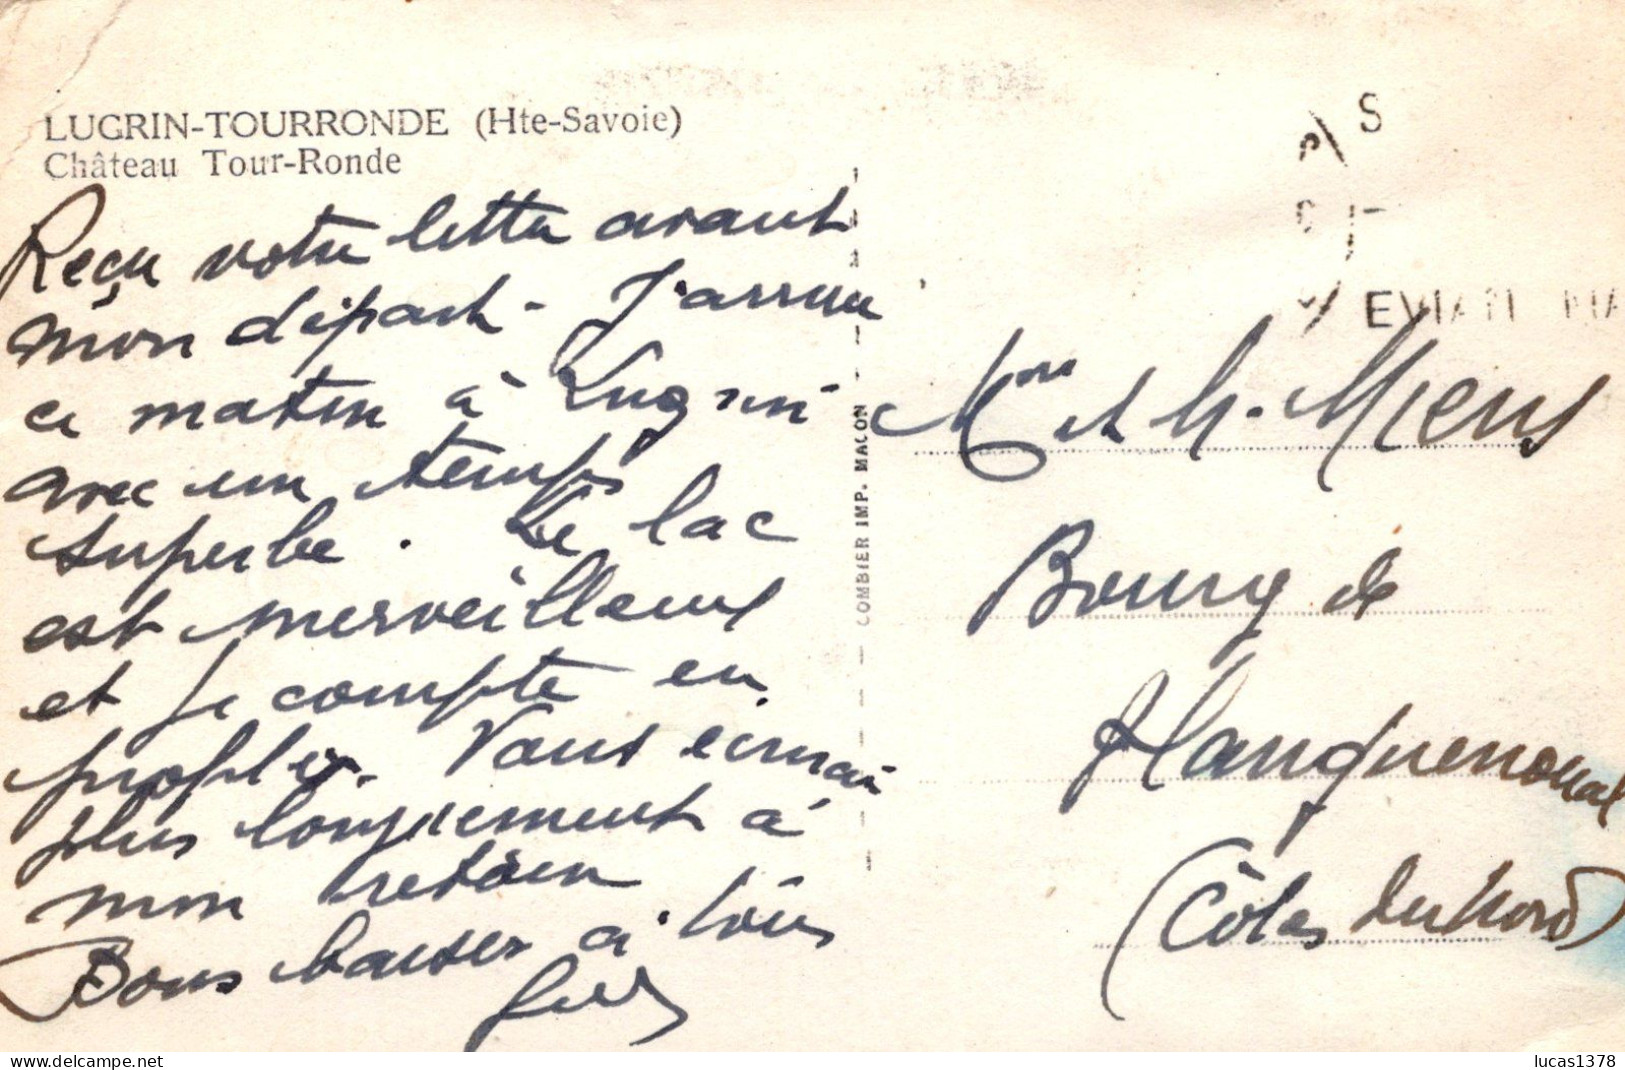 LUGRIN-TOURRONDE (Hte-Savoie)
Château Tour-Ronde
Reçu votre lettre avant
mon départ - J'arrive
ce matin à Lugrin
avec un temps
superbe. Le lac
est merveilleux
et je compte en
profiter. Vous écrirai
plus longuement à
mon retour
Bons baisers à tous
COMBIER IMP. MACON
S
EVIAN
Mme et M.
Bourg de
Planguenoual
(Côtes du Nord)
www.delcampe.net
lucas1378